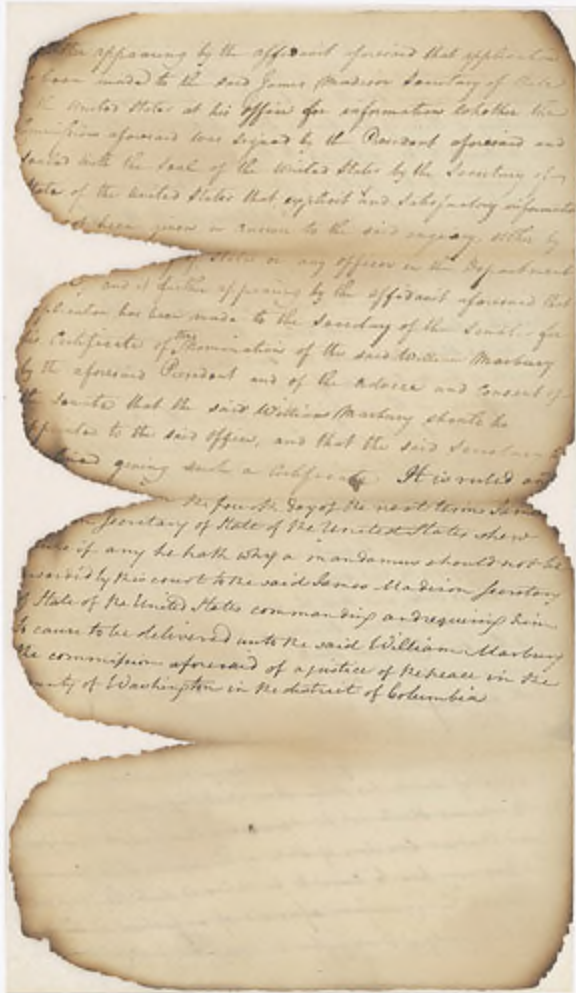 appearing by the affidavit aforesaid that application
been made to the said James Madison Secretary of State
the United States at his office for information whether the
commission aforesaid was signed by the President aforesaid and
sealed with the seal of the United States by the Secretary of
State of the United States that explicit and satisfactory information
not been given in answer to the said enquiry, either by
of State or any officer in the Department
and it further appearing by the affidavit aforesaid that
application has been made to the Secretary of the Senate for
his Certificate of the Nomination of the said William Marbury
by the aforesaid President and of the Advice and Consent of
Senate that the said William Marbury should be
appointed to the said office, and that the said Secretary
giving such a Certificate It is ruled and
the fourth day of the next term James
Secretary of State of the United States shew
cause if any he hath why a mandamus should not be
awarded by this court to the said James Madison Secretary
of State of the United States commanding and requiring him
to cause to be delivered unto the said William Marbury
the commission aforesaid of a justice of the peace in the
county of Washington in the district of Columbia